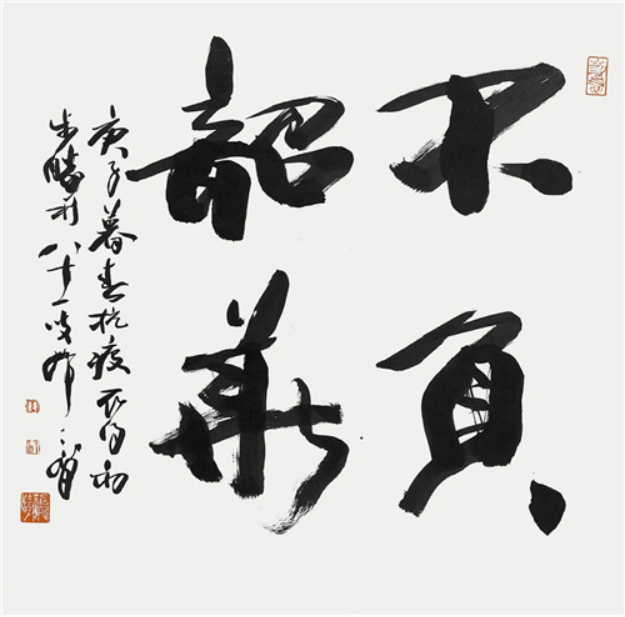 不負
韶華
庚子暮春抗疫取得初
步勝利八十一叟